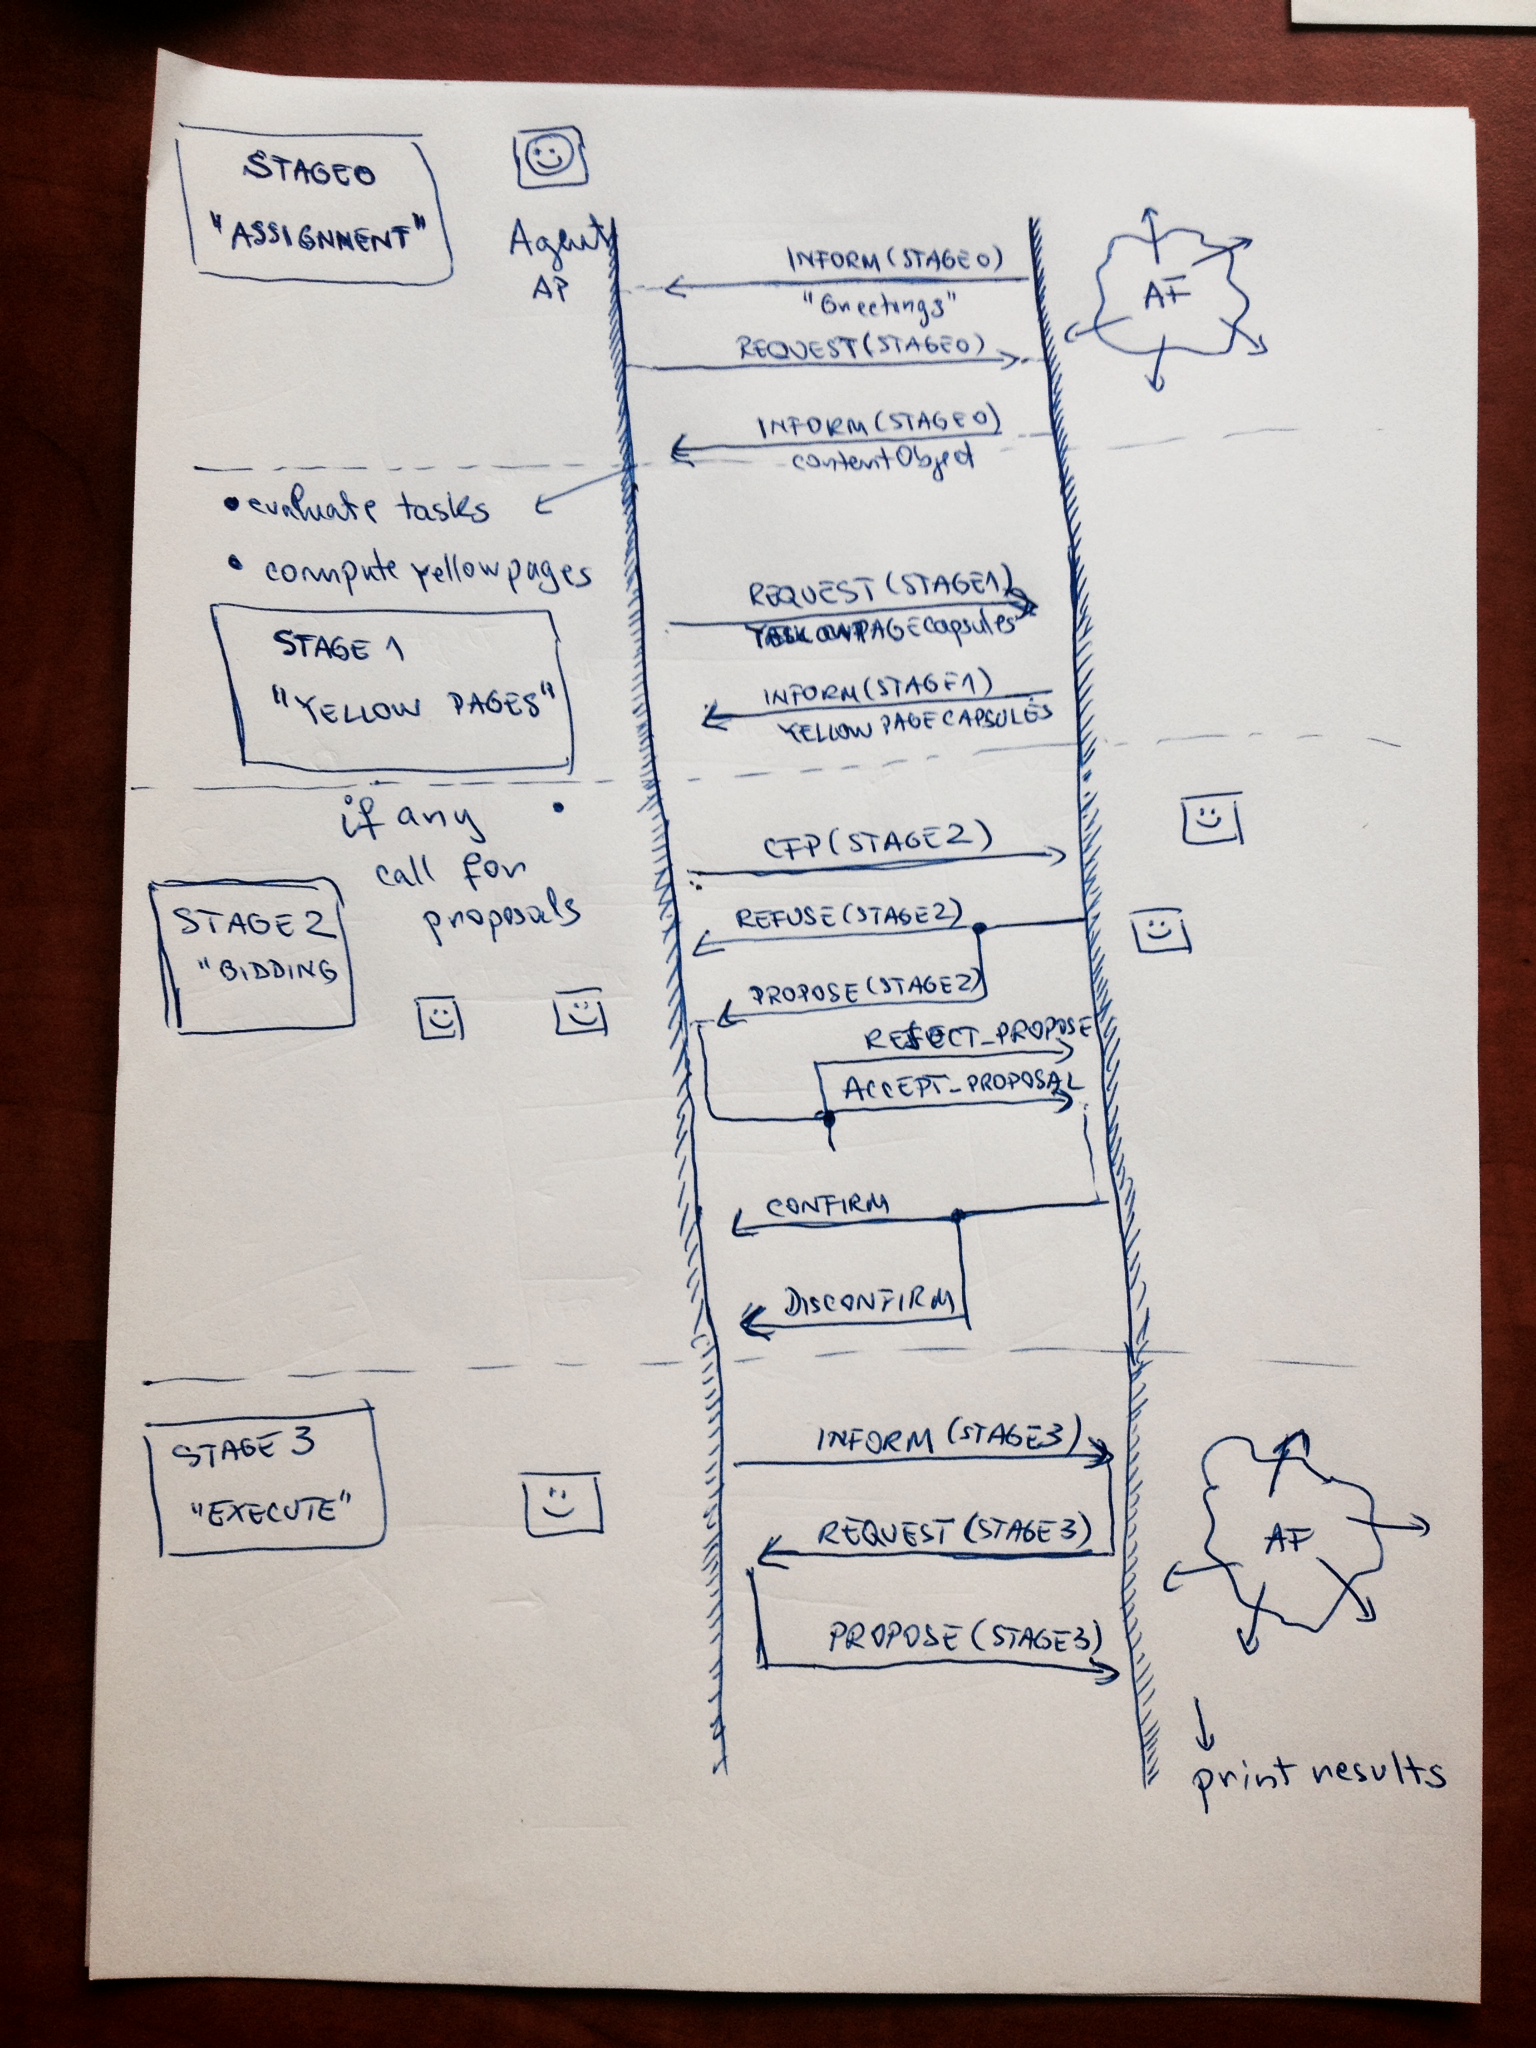 STAGE0
"ASSIGNMENT"
Agent
AP
INFORM (STAGE0)
"Greetings"
AF
REQUEST (STAGE0)
INFORM (STAGE0)
contentObject
• evaluate tasks
• compute yellowpages
REQUEST (STAGE1)
PAGEcapsules
STAGE 1
"YELLOW PAGES"
INFORM (STAGE1)
YELLOWPAGECAPSULES
if any
call for
proposals
CFP (STAGE2)
STAGE 2
"BIDDING
REFUSE (STAGE2)
PROPOSE (STAGE2)
REJECT_PROPOSE
ACCEPT_PROPOSAL
CONFIRM
DISCONFIRM
STAGE 3
"EXECUTE"
INFORM (STAGE3)
REQUEST (STAGE3)
AF
PROPOSE (STAGE3)
print results